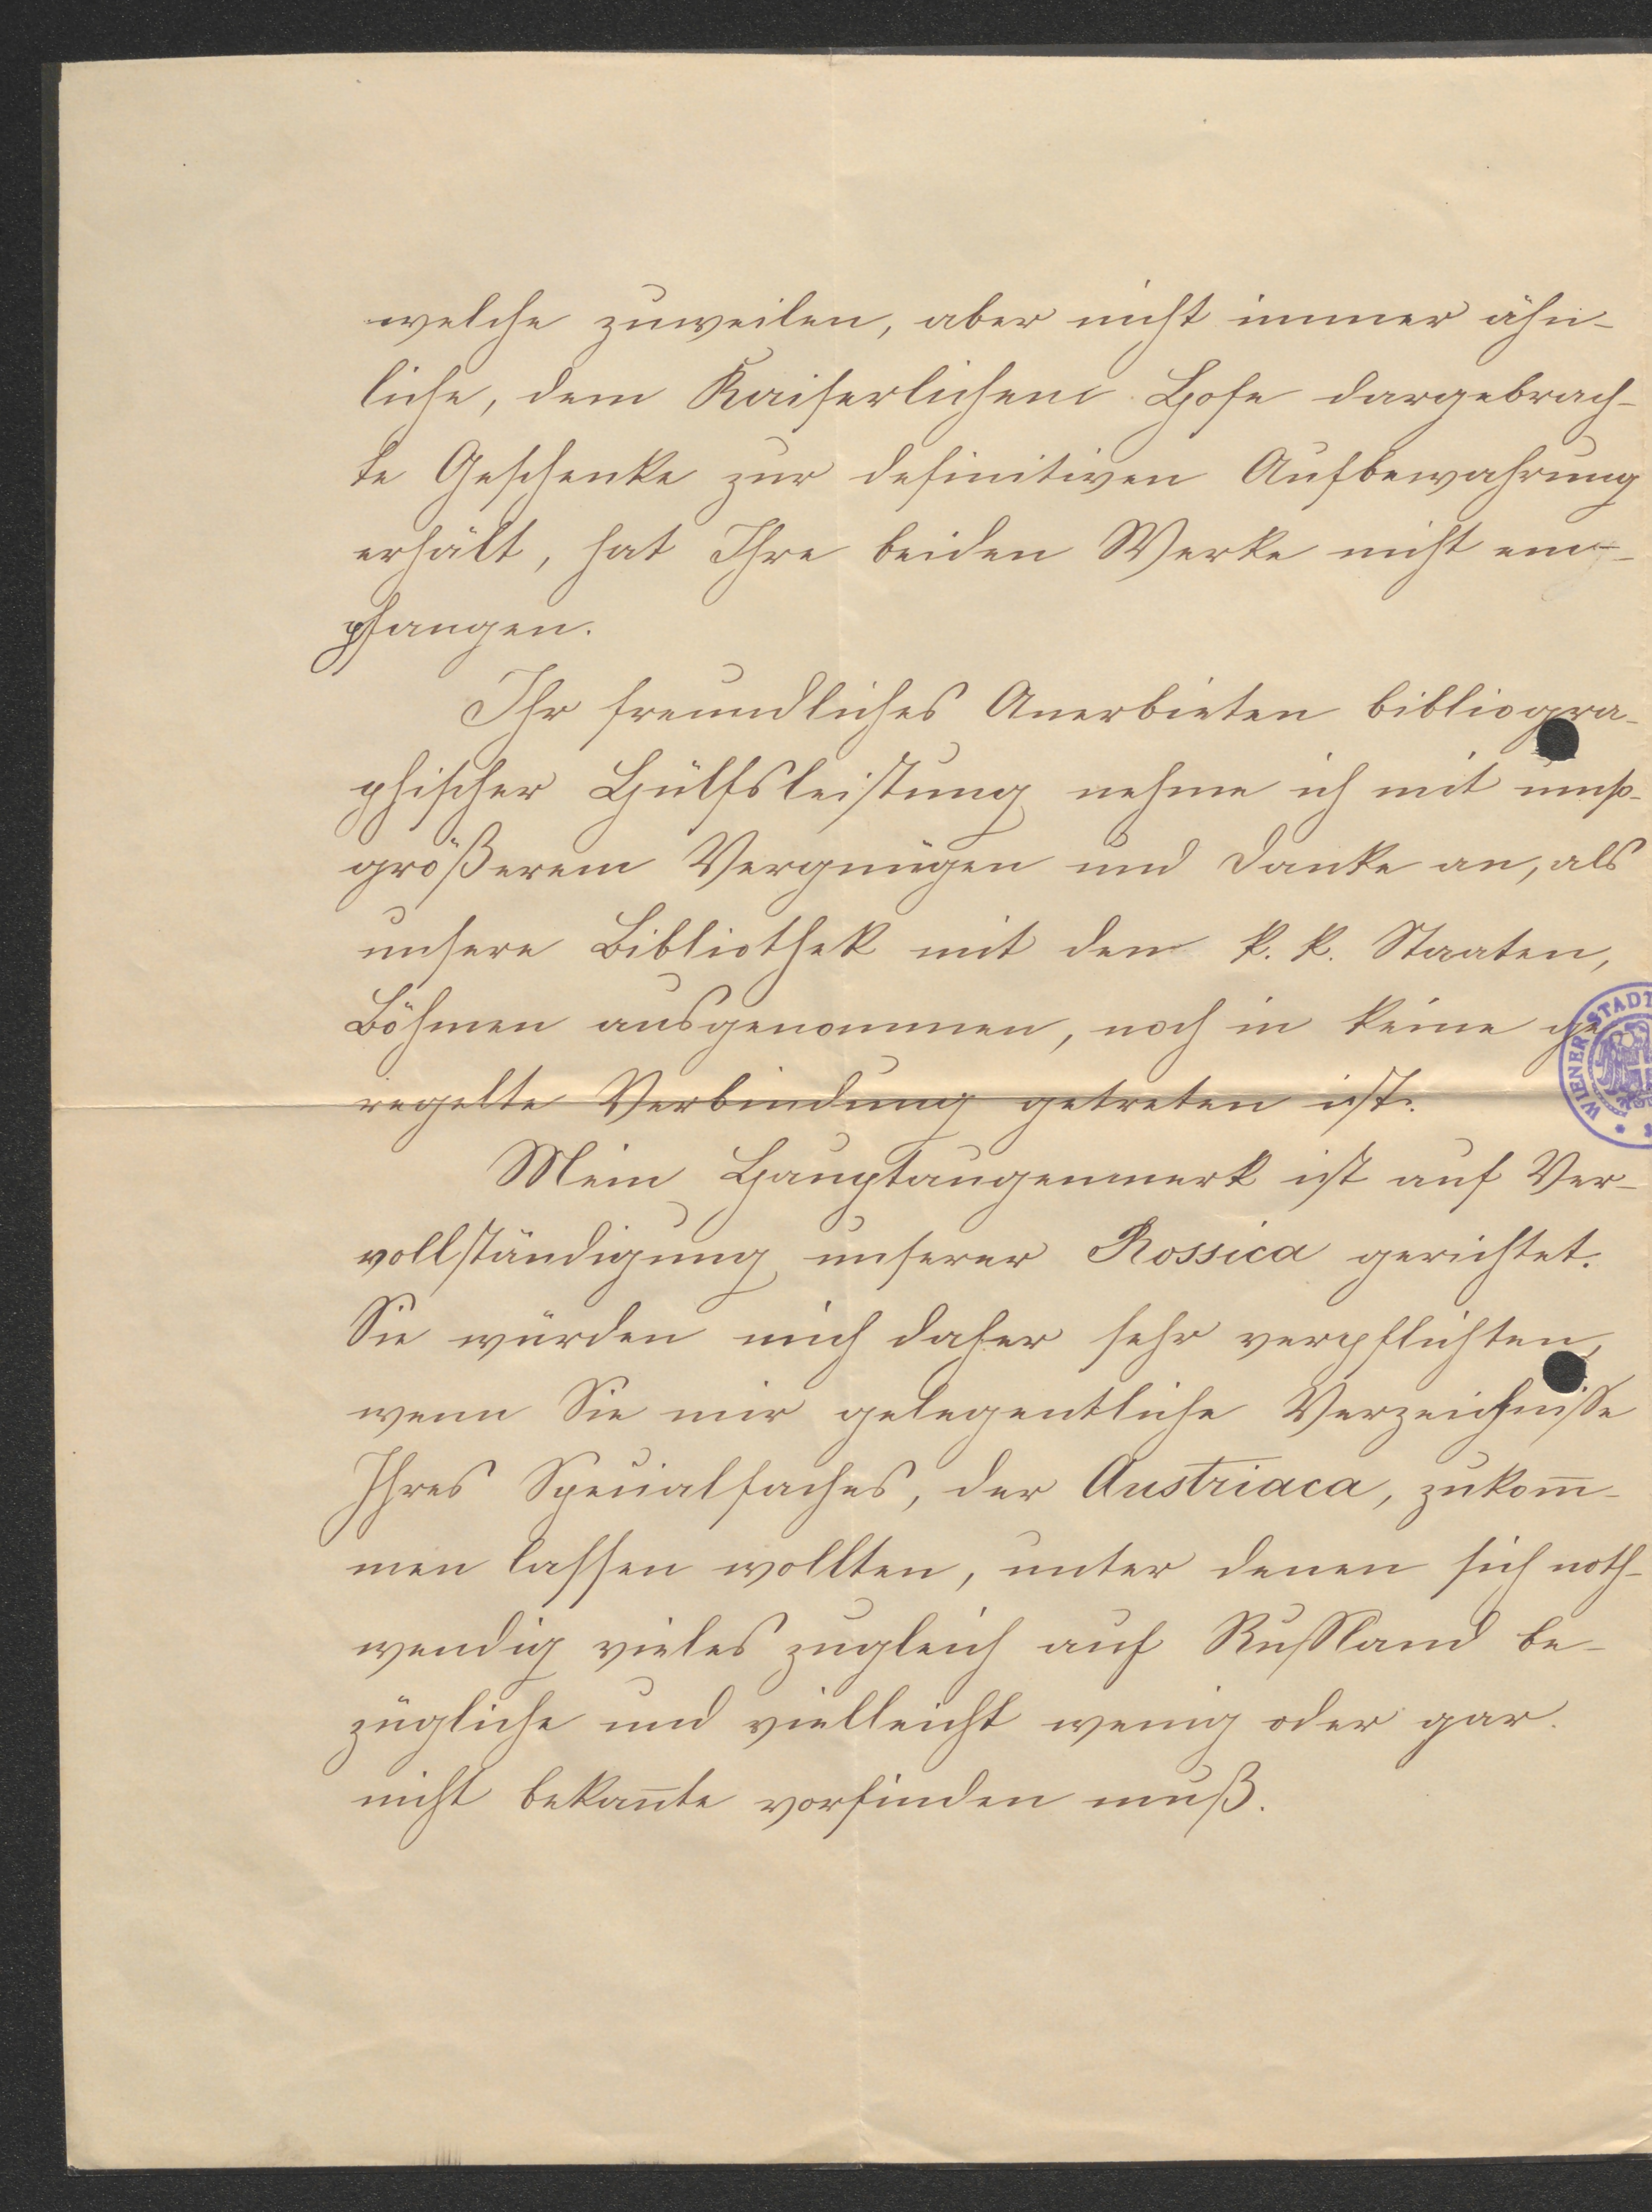 welche zuweilen, aber nicht immer ähn-
liche, dem Kaiserlichen Hofe dargebrach-
te Geschenke zur definitiven Aufbewahrung
erhält, hat Ihre beiden Werke nicht em-
pfangen.
Ihr freundliches Anerbieten bibliogra-
phischer Hülfsleistung nehme ich mit umso
größerem Vergnügen und Danke an, als
unsere Bibliothek mit den k. k. Staaten,
Böhmen ausgenommen, noch in keine ge
regelte Verbindung getreten ist.
Mein Hauptaugenmerk ist auf Ver-
vollständigung unserer Rossica gerichtet.
Sie würden mich daher sehr verpflichten,
wenn Sie mir gelegentliche Verzeichnisse
Ihres Specialfaches, der Austriaca, zukom̅-
men lassen wollten, unter denen sich noth-
wendig vieles zugleich auf Russland be-
zügliche und vielleicht wenig oder gar
nicht bekan̅te vorfinden muß.
WIENER STADT